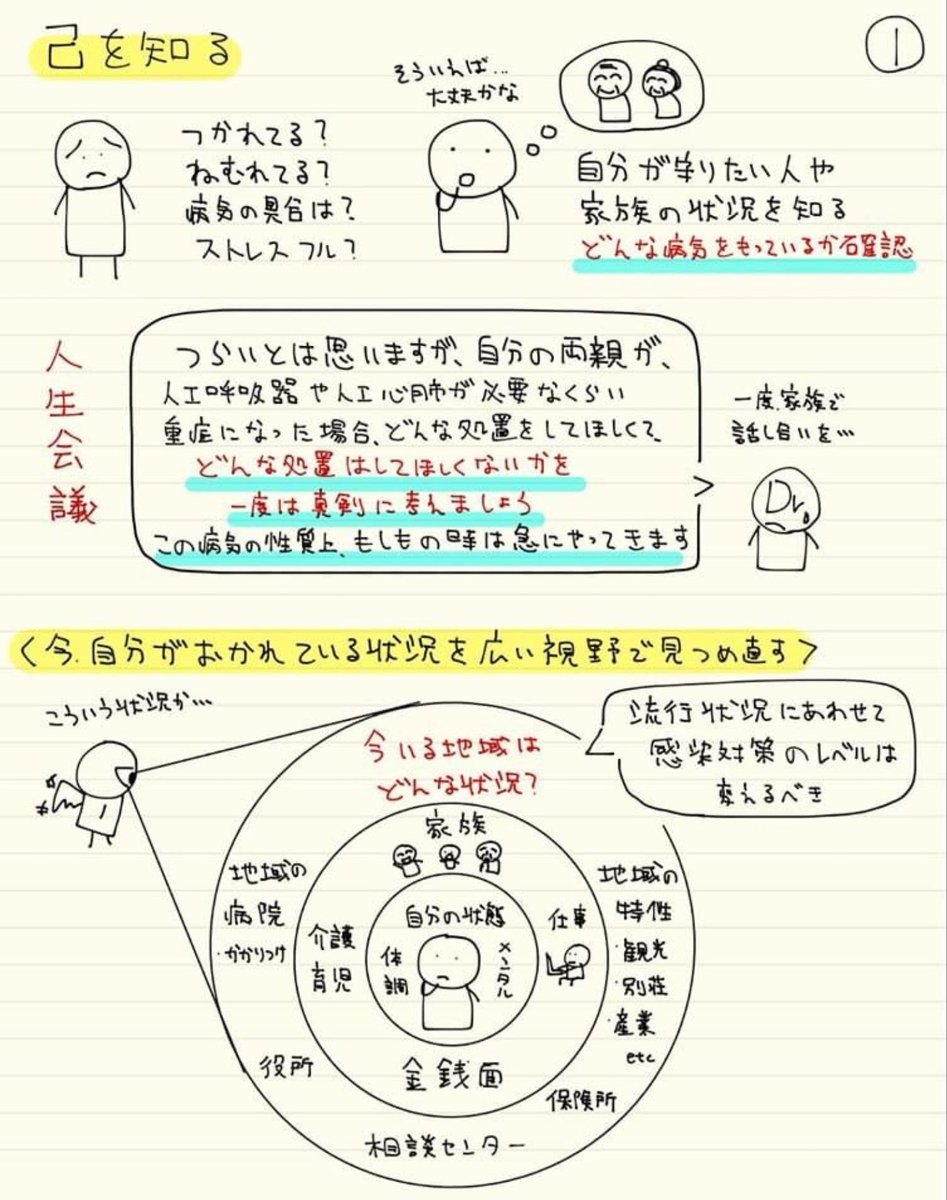 己を知る
1
つかれてる?
ねむれてる?
病気の具合は?
ストレスフル?
そういえば…
大丈夫かな
自分が守りたい人や
家族の状況を知る
どんな病気をもっているか確認
人生会議
つらいとは思いますが、自分の両親が、
人工呼吸器や人工心肺が必要なくらい
重症になった場合、どんな処置をしてほしくて、
どんな処置はしてほしくないかを
一度は真剣に考えましょう
この病気の性質上、もしもの時は急にやってきます
一度、家族で
話し合いを…
Dr.
<今、自分がおかれている状況を広い視野で見つめ直す>
こういう状況か…
流行状況にあわせて
感染対策のレベルは
変えるべき
今いる地域は
どんな状況?
家族
地域の
病院
・かかりつけ
介護
育児
自分の状態
体調
メンタル
仕事
地域の
特性
・観光
・別荘
・産業
etc
役所
金銭面
保険所
相談センター